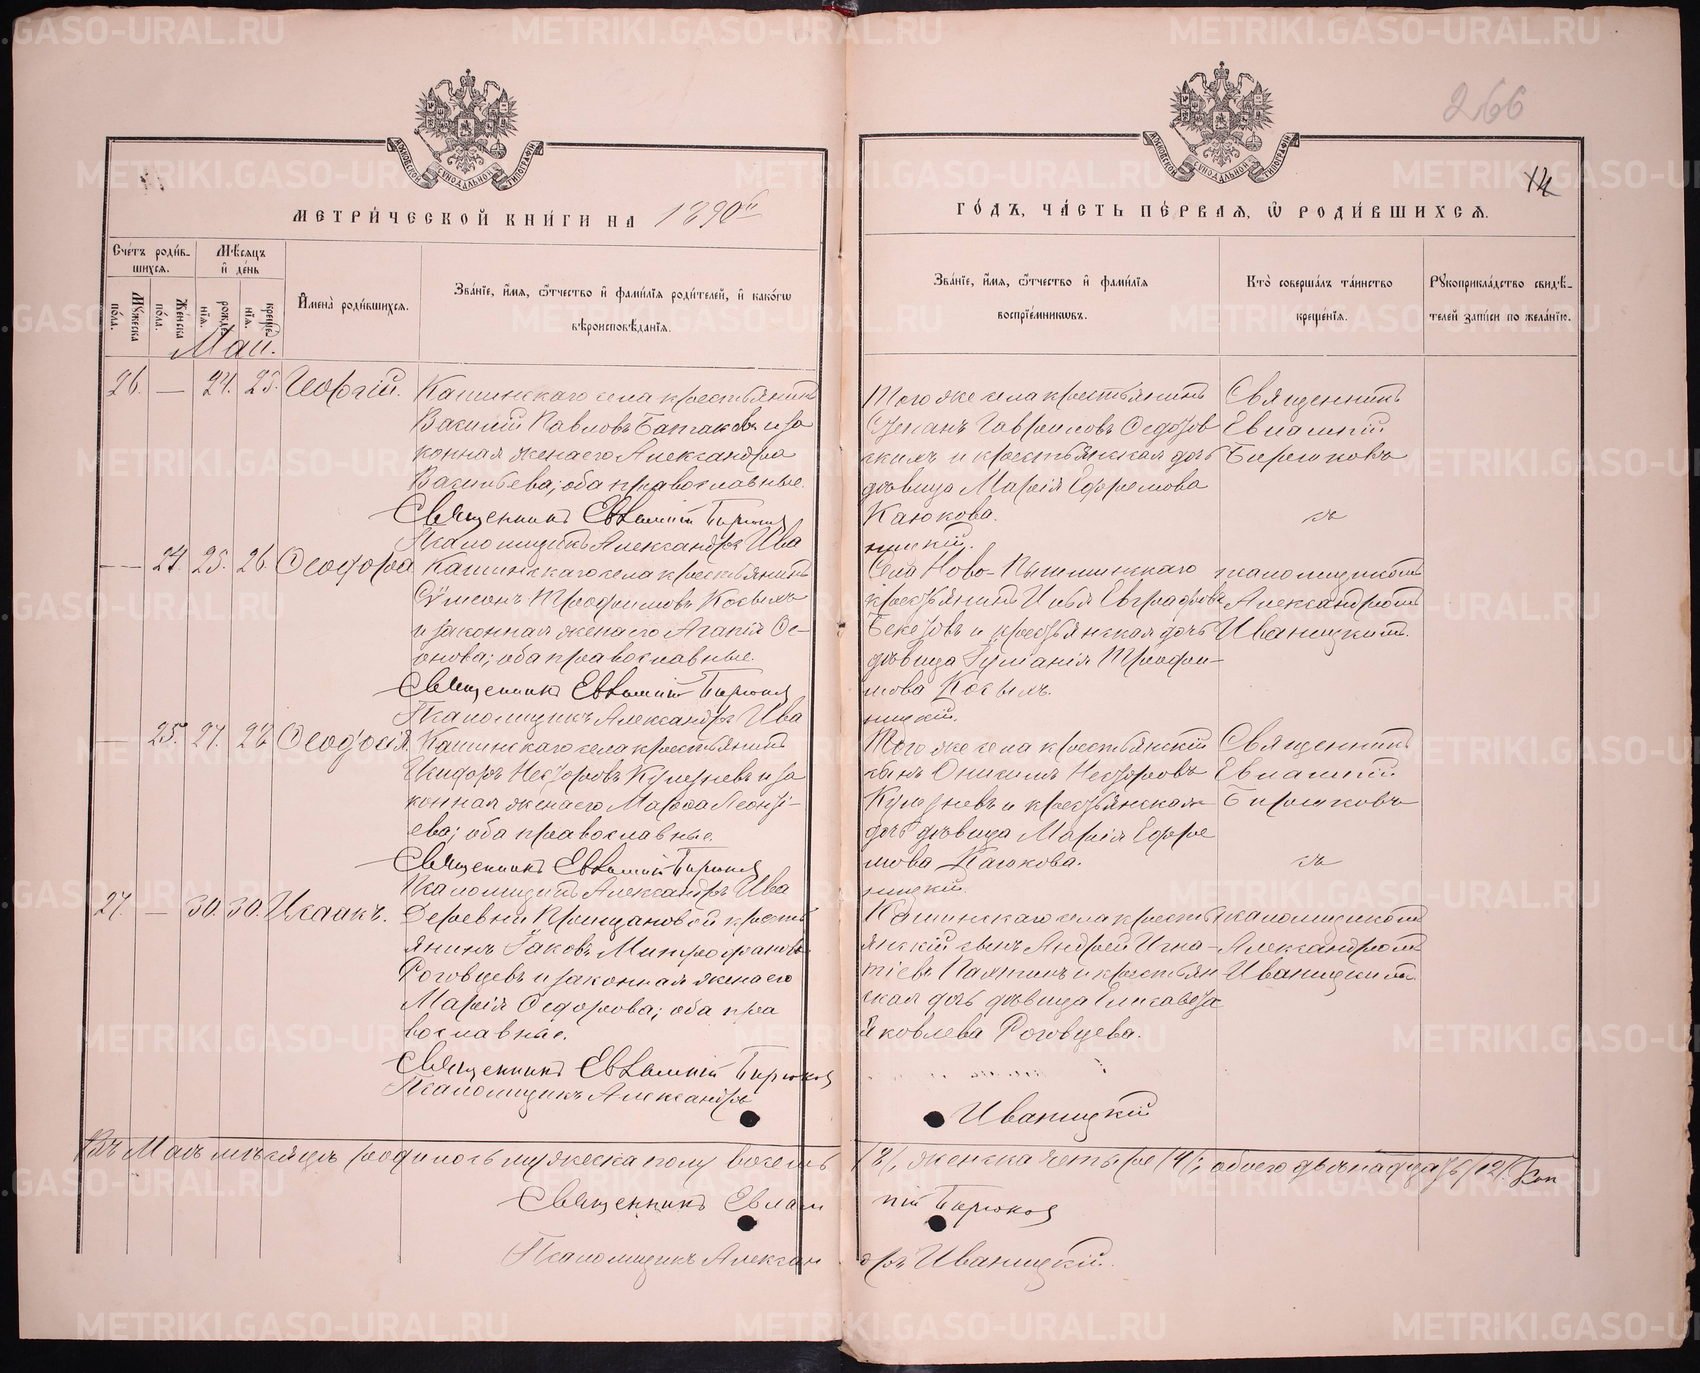 266
14
МЕТРИ́ЧЕСКОЙ КНИ́ГИ НА 1890й
ГО́ДЪ, ЧА́СТЬ ПЕ́РВАЯ, Ѡ҆ РОДИ́ВШИХСЯ.
Сче́тъ роди́вшихся.
Мѣ́сяцъ и҆ де́нь
Му́жеска по́ла.
Же́нска по́ла.
рожде́нїя.
креще́нїя.
И҆мена̀ роди́вшихся.
Зва́нїе, и҆́мя, ѻ҆́тчество и҆ фами́лїя роди́телей, и҆ како́гѡ вѣроисповѣ́данїя.
Зва́нїе, и҆́мя, ѻ҆́тчество и҆ фами́лїя воспрїе́мникѡвъ.
Кто̀ соверша́лъ та́инство креще́нїя.
Рукоприкла́дство свидѣ́телей за́писи по жела́нїю.
Май.
26. — 24. 25. Георгій.
Кашинскаго села крестьянинъ
Василій Павловъ и за
конная жена его Александра
Васильева; оба православные.
Священникъ Евлампій Бирюков
Псаломщикъ Александръ Ива
ницкій.
Того же села крестьянинъ
Степанъ Гавриловъ
и крестьянская дочь
дѣвица Марія Ефремова
Каюкова.
Священникъ
Евлампій
Бирюковъ
— 24. 25. 26. Ѳеодора
Кашинскаго села крестьянинъ
Сѵмеонъ Трофимовъ Косыхъ
и законная жена его Агапія Се-
онова; оба православные.
Священникъ Евлампій Бирюков
Псаломщикъ Александръ Ива
ницкій.
Села Ново-Пышминскаго
крестьянинъ Илья Евграфовъ
Бекетовъ и крестьянская дочь
дѣвица Іуліанія Трофи-
мова Косыхъ.
псаломщикомъ
Александромъ
Иваницкимъ.
— 25. 27. 28 Ѳеодосія
Кашинскаго села крестьянинъ
Исидоръ Несторовъ и за
конная жена его Марѳа Леонтi-
ева; оба православные.
Священникъ Евлампій Бирюков
Псаломщикъ Александръ Ива
ницкій.
Того же села крестьянскій
сынъ Онисимъ Несторовъ
и крестьянская
дочь дѣвица Марія Ефре
мова Каюкова.
Священникъ
Евлампій
Бирюковъ
27. — 30. 30. Исаакъ.
Деревни Прищановой кресть
янинъ Іаковъ Митрофановъ
Роговцевъ и законная жена его
Марія Ѳедорова; оба пра
вославные.
Священникъ Евлампій Бирюков
Псаломщикъ Александръ
Иваницкій
Кашинскаго села кресть
янскій сынъ Андрей Игна-
тіевъ и крестьян
ская дочь дѣвица Елисавета
Яковлева Роговцева.
псаломщикомъ
Александромъ
Иваницкимъ.
Въ Маѣ мѣсяцѣ родилось мужеска полу восемь /8/, женска четыре /4/; обоего двѣнадцать /12/.
Священникъ Евлампій Бирюков
Псаломщикъ Александръ Иваницкій.
METRIKI.GASO-URAL.RU